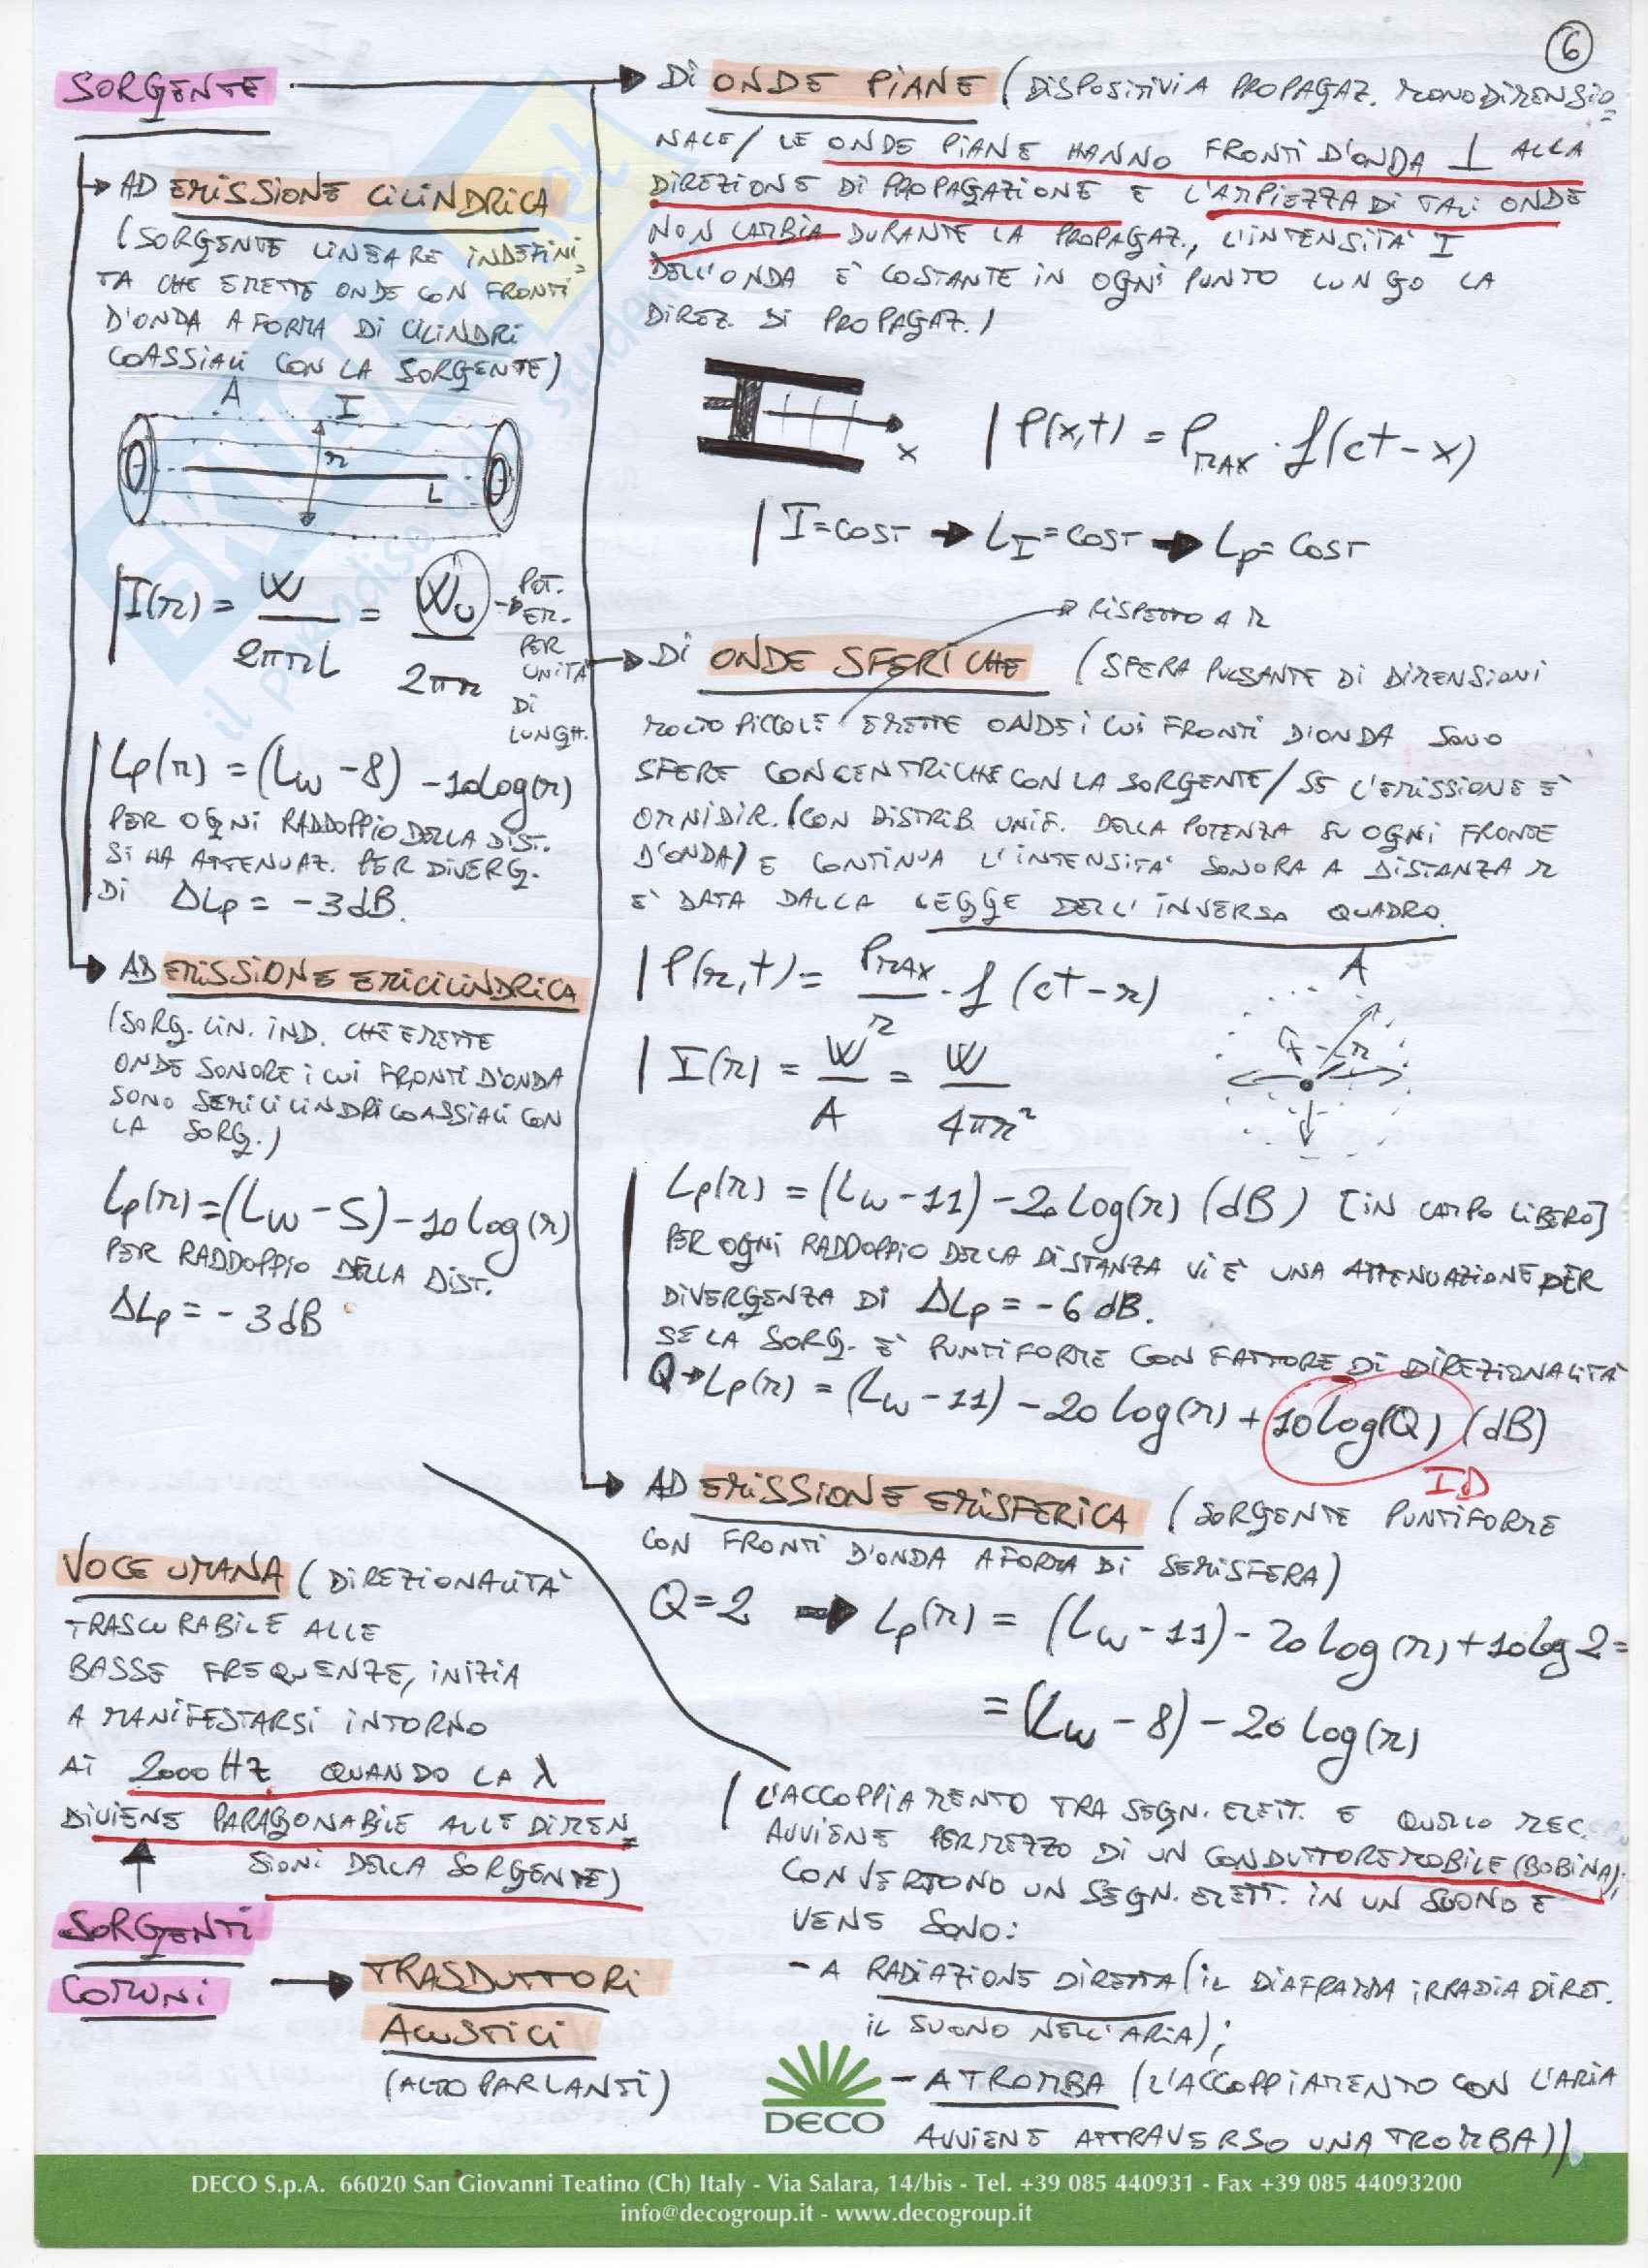 6
SORGENTE
AD EMISSIONE CILINDRICA
(SORGENTE LINEARE INDEFINI
TA CHE EMETTE ONDE CON FRONTI
D'ONDA A FORMA DI CILINDRI
COASSIALI CON LA SORGENTE)
A I
r
L
I(r) = W / 2πrL = Wu / 2πr
POT.
EM.
PER
UNITÀ
DI
LUNGH.
Lp(r) = (Lw - 8) - 10log(r)
PER OGNI RADDOPPIO DELLA DIST.
SI HA ATTENUAZ. PER DIVERG.
DI ΔLp = - 3 dB.
AD EMISSIONE EMICILINDRICA
(SORG. LIN. IND. CHE EMETTE
ONDE SONORE I CUI FRONTI D'ONDA
SONO SEMICILINDRI COASSIALI CON
LA SORG.)
Lp(r) = (Lw - 5) - 10 log(r)
PER RADDOPPIO DELLA DIST.
ΔLp = - 3 dB
DI ONDE PIANE (DISPOSITIVI A PROPAGAZ. MONODIMENSIO
NALE/ LE ONDE PIANE HANNO FRONTI D'ONDA ⊥ ALLA
DIREZIONE DI PROPAGAZIONE E L'AMPIEZZA DI TALI ONDE
NON CAMBIA DURANTE LA PROPAGAZ., L'INTENSITÀ I
DELL'ONDA È COSTANTE IN OGNI PUNTO LUNGO LA
DIREZ. DI PROPAGAZ.)
x
P(x,t) = PMAX · f(ct - x)
I = COST → LI = COST → Lp = COST
RISPETTO A R
DI ONDE SFERICHE (SFERA PULSANTE DI DIMENSIONI
MOLTO PICCOLE EMETTE ONDE I CUI FRONTI D'ONDA SONO
SFERE CONCENTRICHE CON LA SORGENTE/ SE L'EMISSIONE È
OMNIDIR. (CON DISTRIB. UNIF. DELLA POTENZA SU OGNI FRONTE
D'ONDA) E CONTINUA L'INTENSITÀ SONORA A DISTANZA R
È DATA DALLA LEGGE DELL'INVERSO QUADRO.
P(r,t) = PMAX / r · f (ct - r)
A
r
I(r) = W / A = W / 4πr²
Lp(r) = (Lw - 11) - 20 log(r) (dB) [IN CAMPO LIBERO]
PER OGNI RADDOPPIO DELLA DISTANZA VI È UNA ATTENUAZIONE PER
DIVERGENZA DI ΔLp = - 6 dB.
SE LA SORG. È PUNTIFORME CON FATTORE DI DIREZIONALITÀ
Q → Lp(r) = (Lw - 11) - 20 log(r) + 10log(Q) (dB)
ID
AD EMISSIONE EMISFERICA (SORGENTE PUNTIFORME
CON FRONTI D'ONDA A FORMA DI SEMISFERA)
Q = 2 → Lp(r) = (Lw - 11) - 20 log(r) + 10log 2 =
= (Lw - 8) - 20 log(r)
VOCE UMANA (DIREZIONALITÀ
TRASCURABILE ALLE
BASSE FREQUENZE, INIZIA
A MANIFESTARSI INTORNO
AI 2000 HZ QUANDO LA λ
DIVIENE PARAGONABILE ALLE DIMEN
SIONI DELLA SORGENTE)
SORGENTI
COMUNI
TRASDUTTORI
ACUSTICI
(ALTOPARLANTI)
L'ACCOPPIAMENTO TRA SEGN. ELETT. E QUELLO MECC.
AVVIENE PER MEZZO DI UN CONDUTTORE MOBILE (BOBINA);
CONVERTONO UN SEGN. ELETT. IN UN SUONO E
VENE SONO:
- A RADIAZIONE DIRETTA (IL DIAFRAMMA IRRADIA DIRET.
IL SUONO NELL'ARIA);
- A TROMBA (L'ACCOPPIAMENTO CON L'ARIA
AVVIENE ATTRAVERSO UNA TROMBA))
DECO
DECO S.p.A. 66020 San Giovanni Teatino (Ch) Italy - Via Salara, 14/bis - Tel. +39 085 440931 - Fax +39 085 44093200
info@decogroup.it - www.decogroup.it